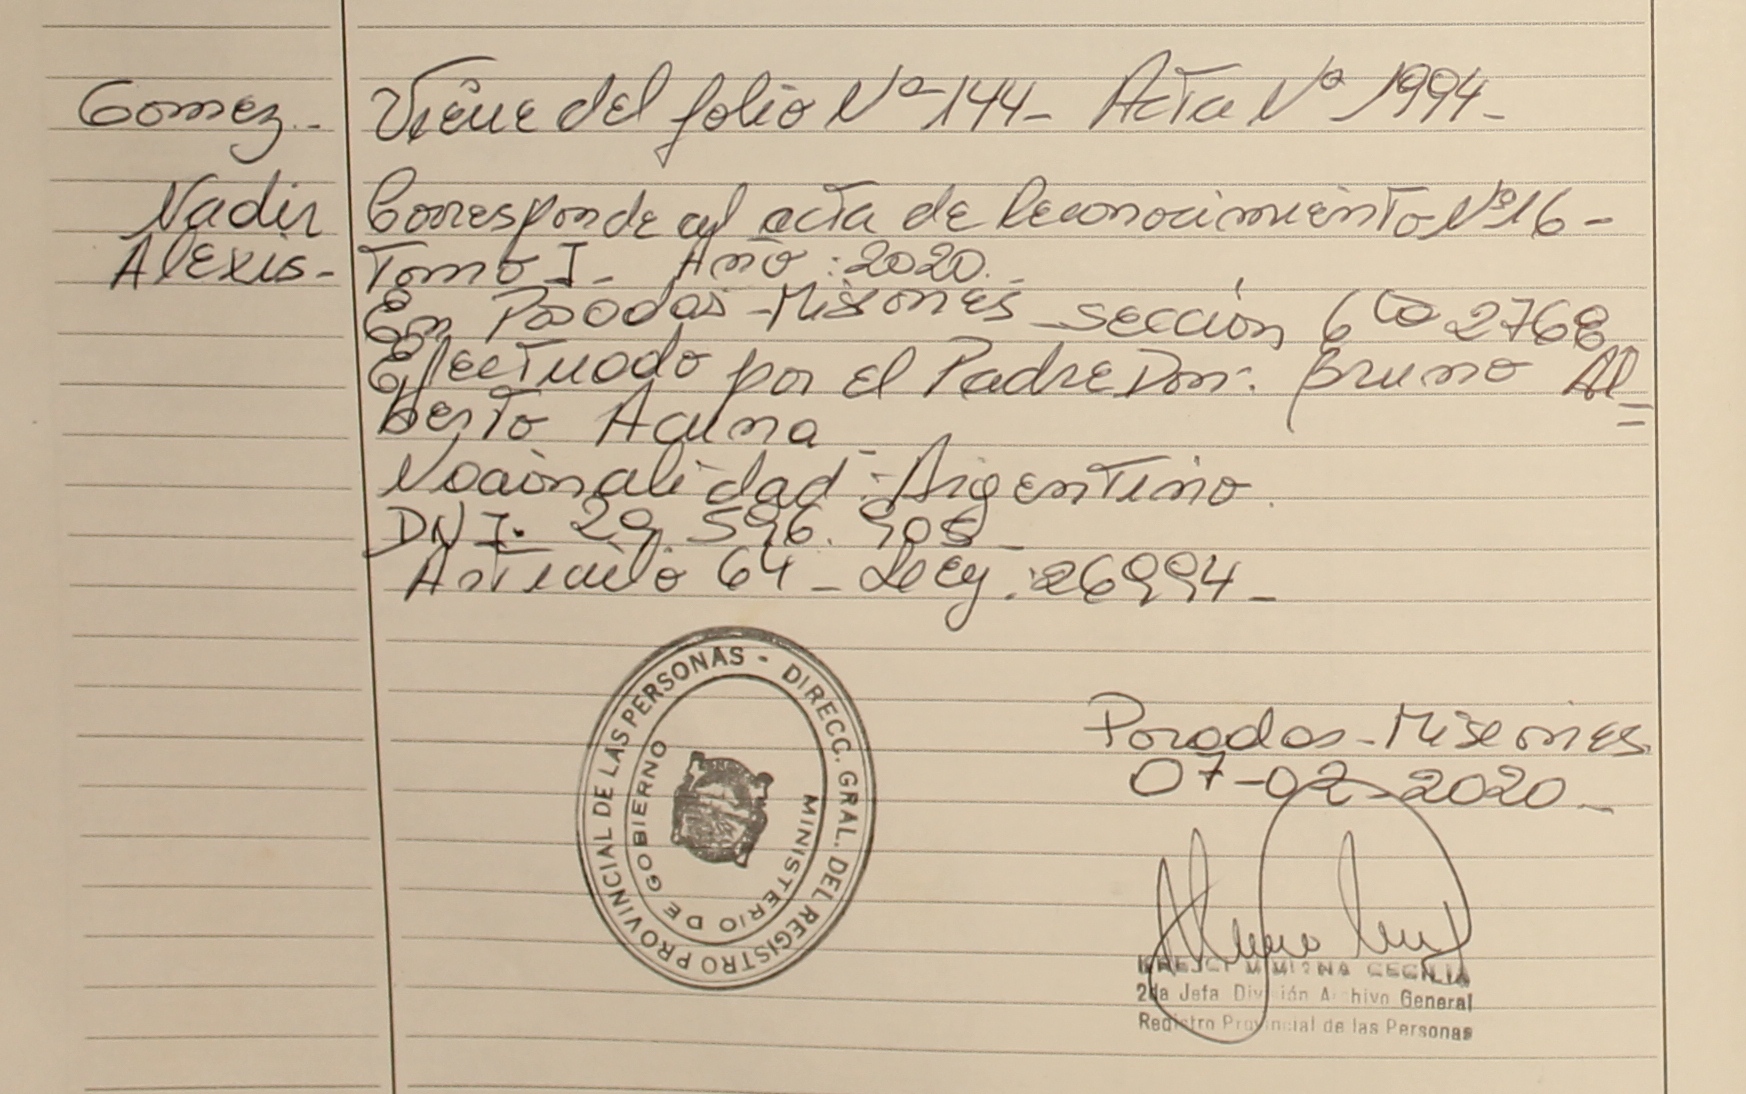 Gomez.
Nadir
Alexis.
Viene del folio Nº 144. Acta Nº 1994.
Corresponde al acta de Reconocimiento Nº 16.
Tomo I. Año: 2020.
En Posadas - Misiones sección 6 to 2768
Efectuado por el Padre Don: Bruno Al=
berto Acuna
Nacionalidad: Argentino.
DNI. 29.596.908
Articulo 64 - Ley: 26994.
REGISTRO PROVINCIAL DE LAS PERSONAS - DIRECC. GRAL. DEL
MINISTERIO DE GOBIERNO
Posadas - Misiones
07-02-2020
CECILIA
2da Jefa División Archivo General
Registro Provincial de las Personas